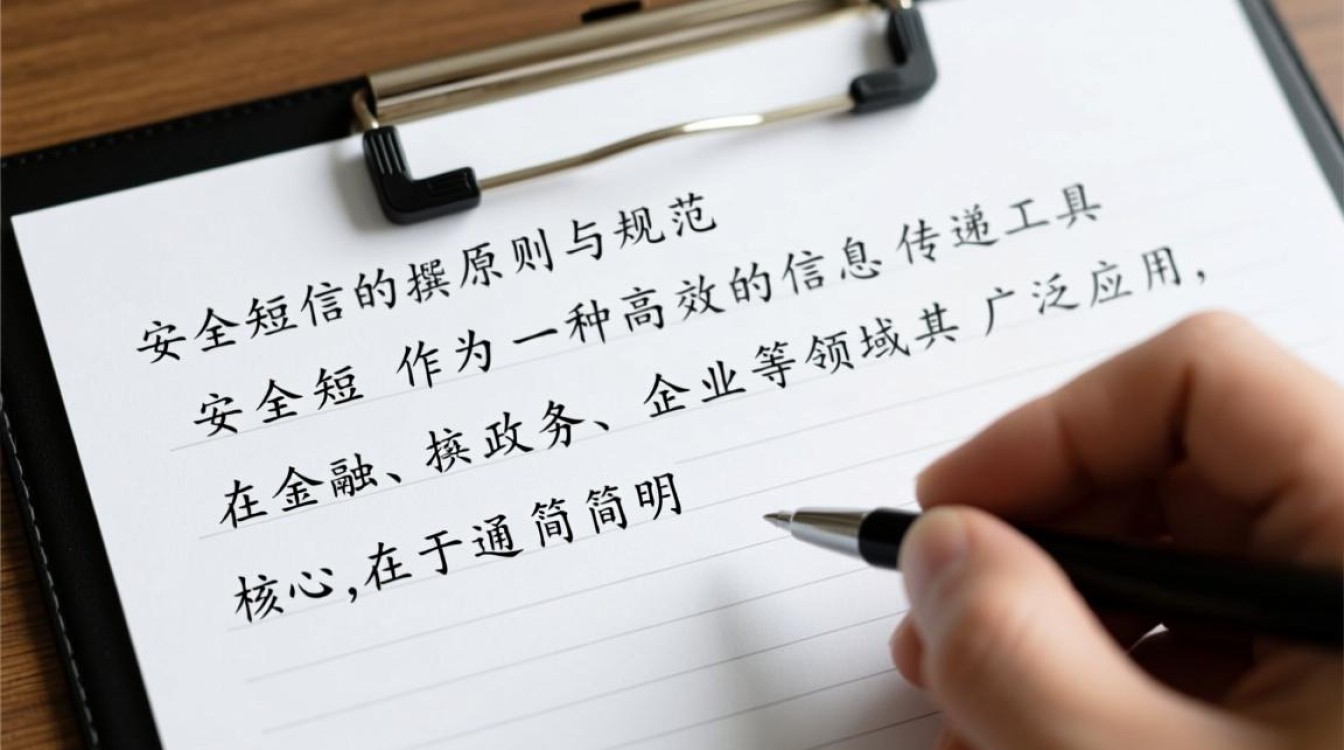 安全短信的撰原则与规范
安全短 作为一种高效的信息传递工具
在金融、揆政务、企业等领域其广泛应用，
核心,在于通简简明